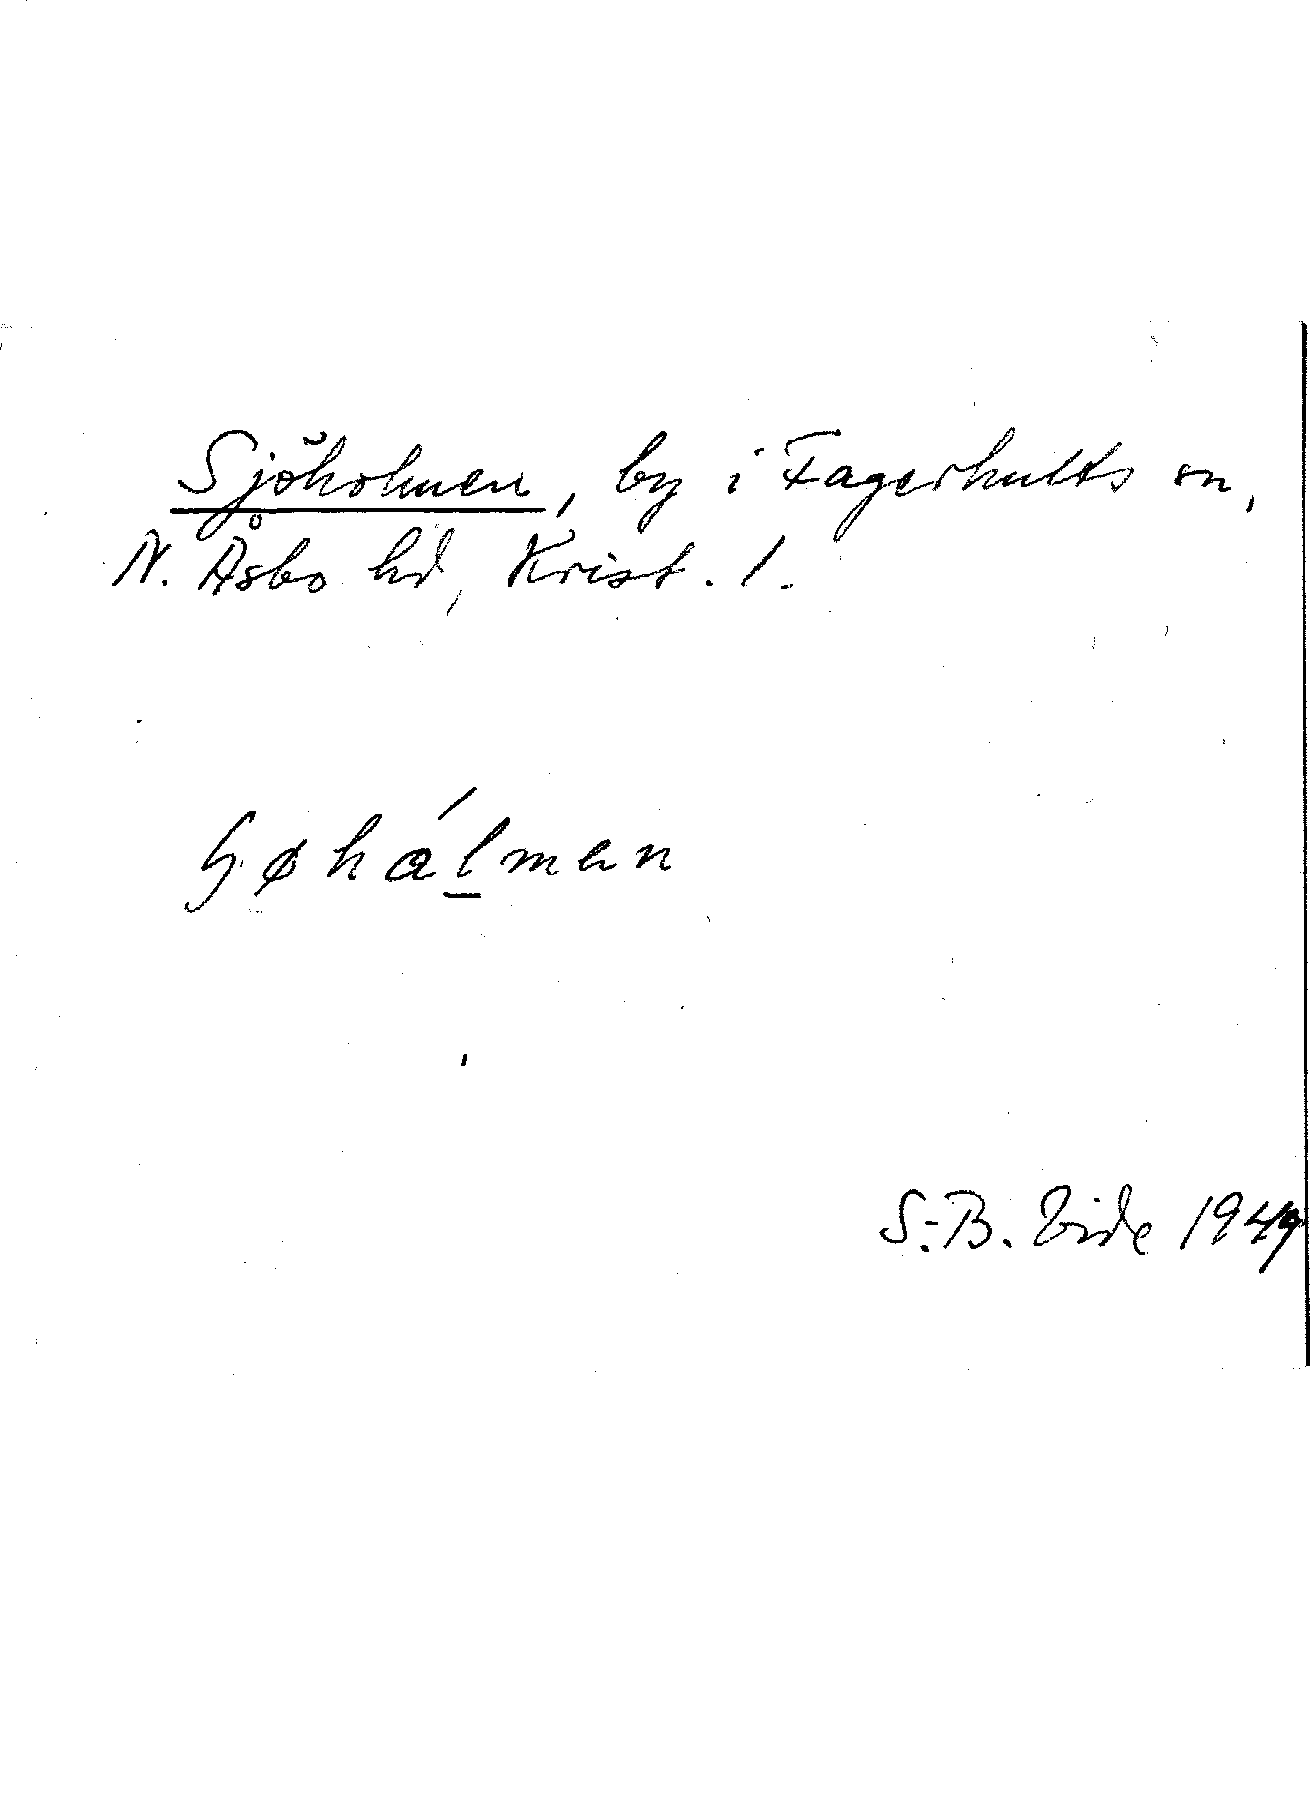 Sjöholmen, by i Fagerhults sn,
N. Åsbo hd, Krist. l.
ɧøhål̲men
S.-B. Vide 1949